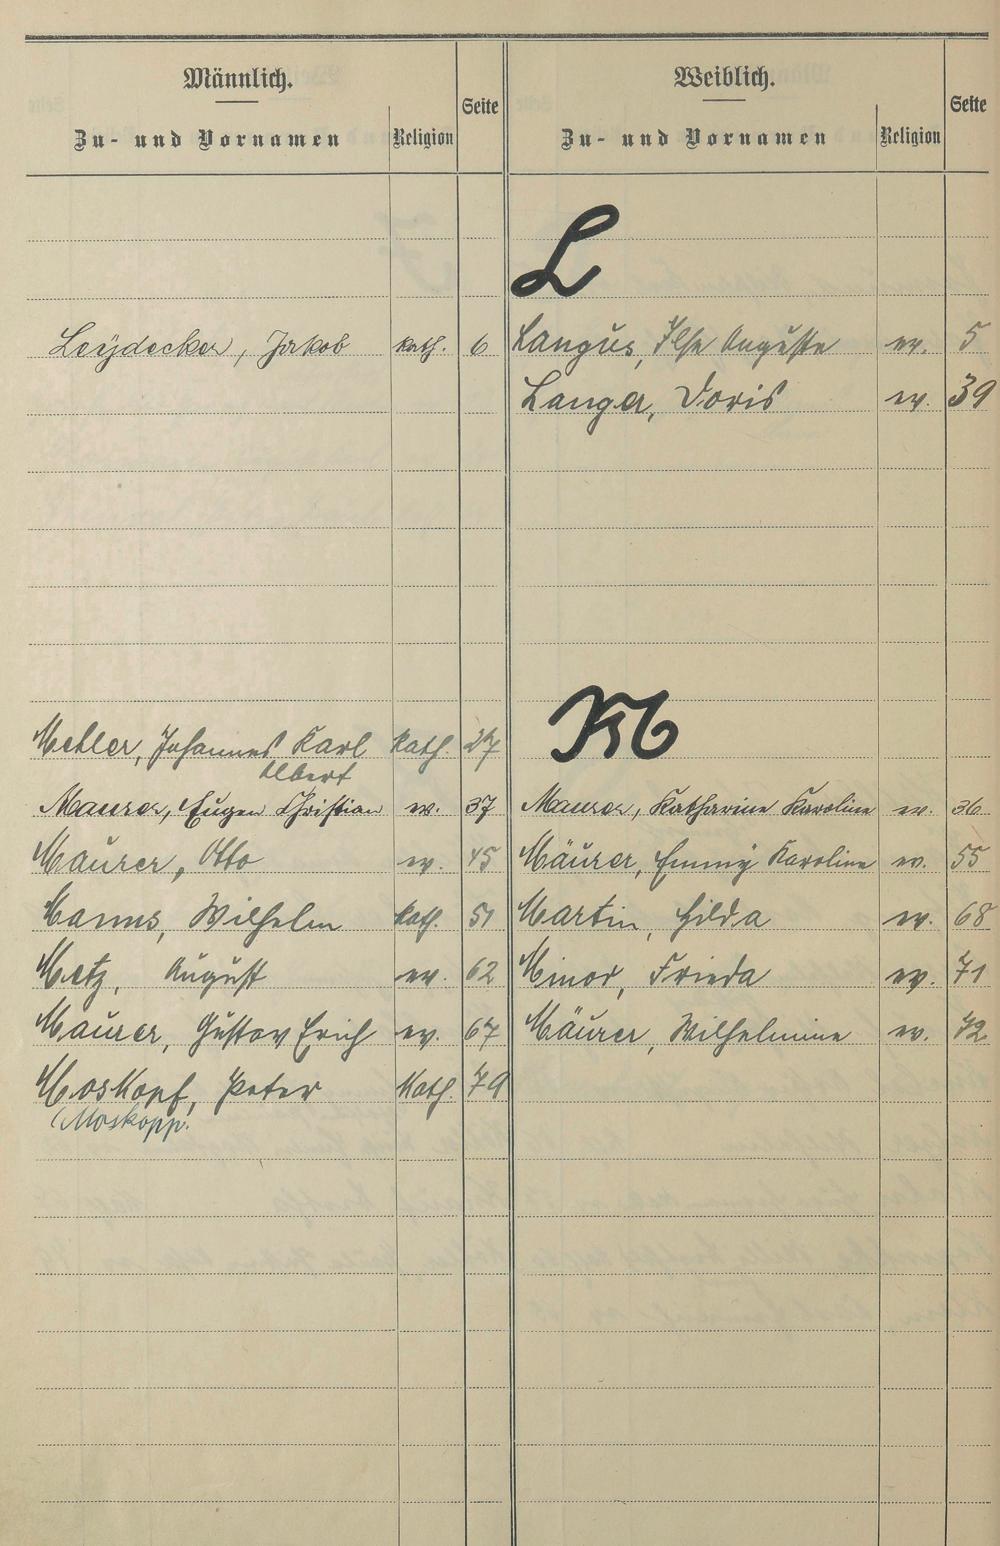 Männlich.
Zu- und Vornamen Religion Seite
Weiblich.
Zu- und Vornamen Religion Seite
L
Leÿdecker, Jakob kath. 6 Langus, Ilse Auguste ev. 5
Langer, Doris ev. 39
M
Metler, Johannes Karl kath. 27
Albert
Maurer, Eugen Christian ev. 37 Maurer, Katharine Karoline ev. 36
Maurer, Otto ev. 45 Mäurer, Emmy Karoline ev. 55
Manns, Wilhelm kath. 51 Martin, Hilda ev. 68
Metz, August ev. 62 Minor, Frieda ev. 71
Maurer, Gustav Erich ev. 67 Mäurer, Wilhelmine ev. 72
Moskopf, Peter Kath. 79
(Moskopp.